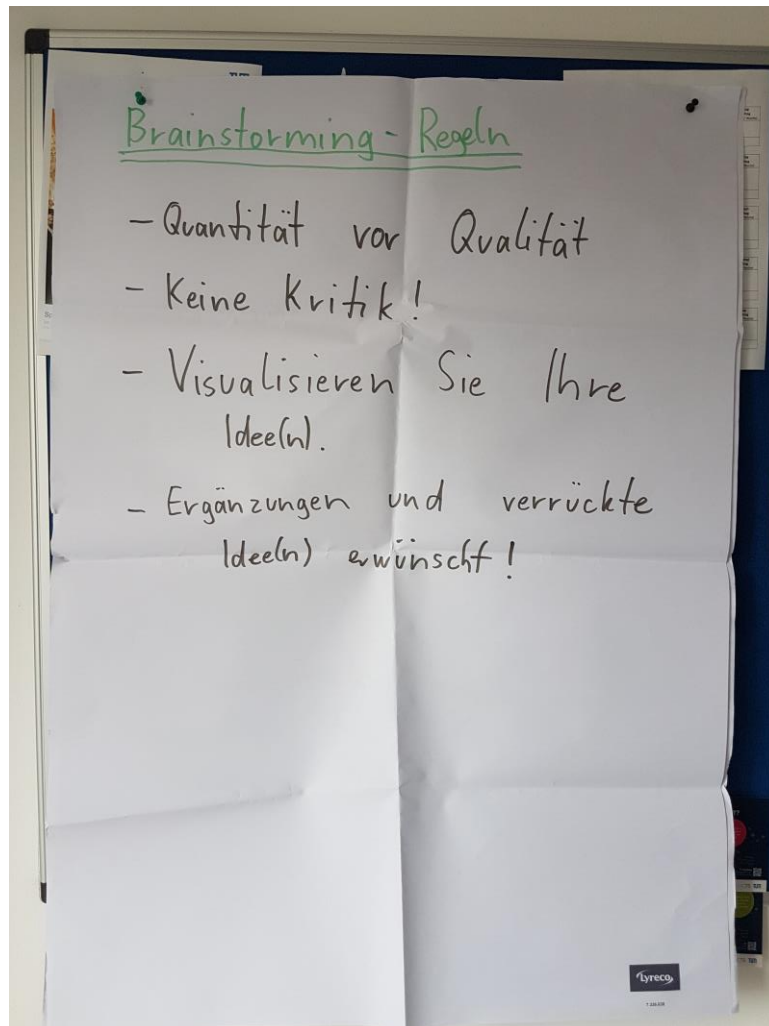 Brainstorming - Regeln
- Quantität vor Qualität
- Keine Kritik!
- Visualisieren Sie Ihre
Idee(n).
- Ergänzungen und verrückte
Idee(n) erwünscht!
Lyreco